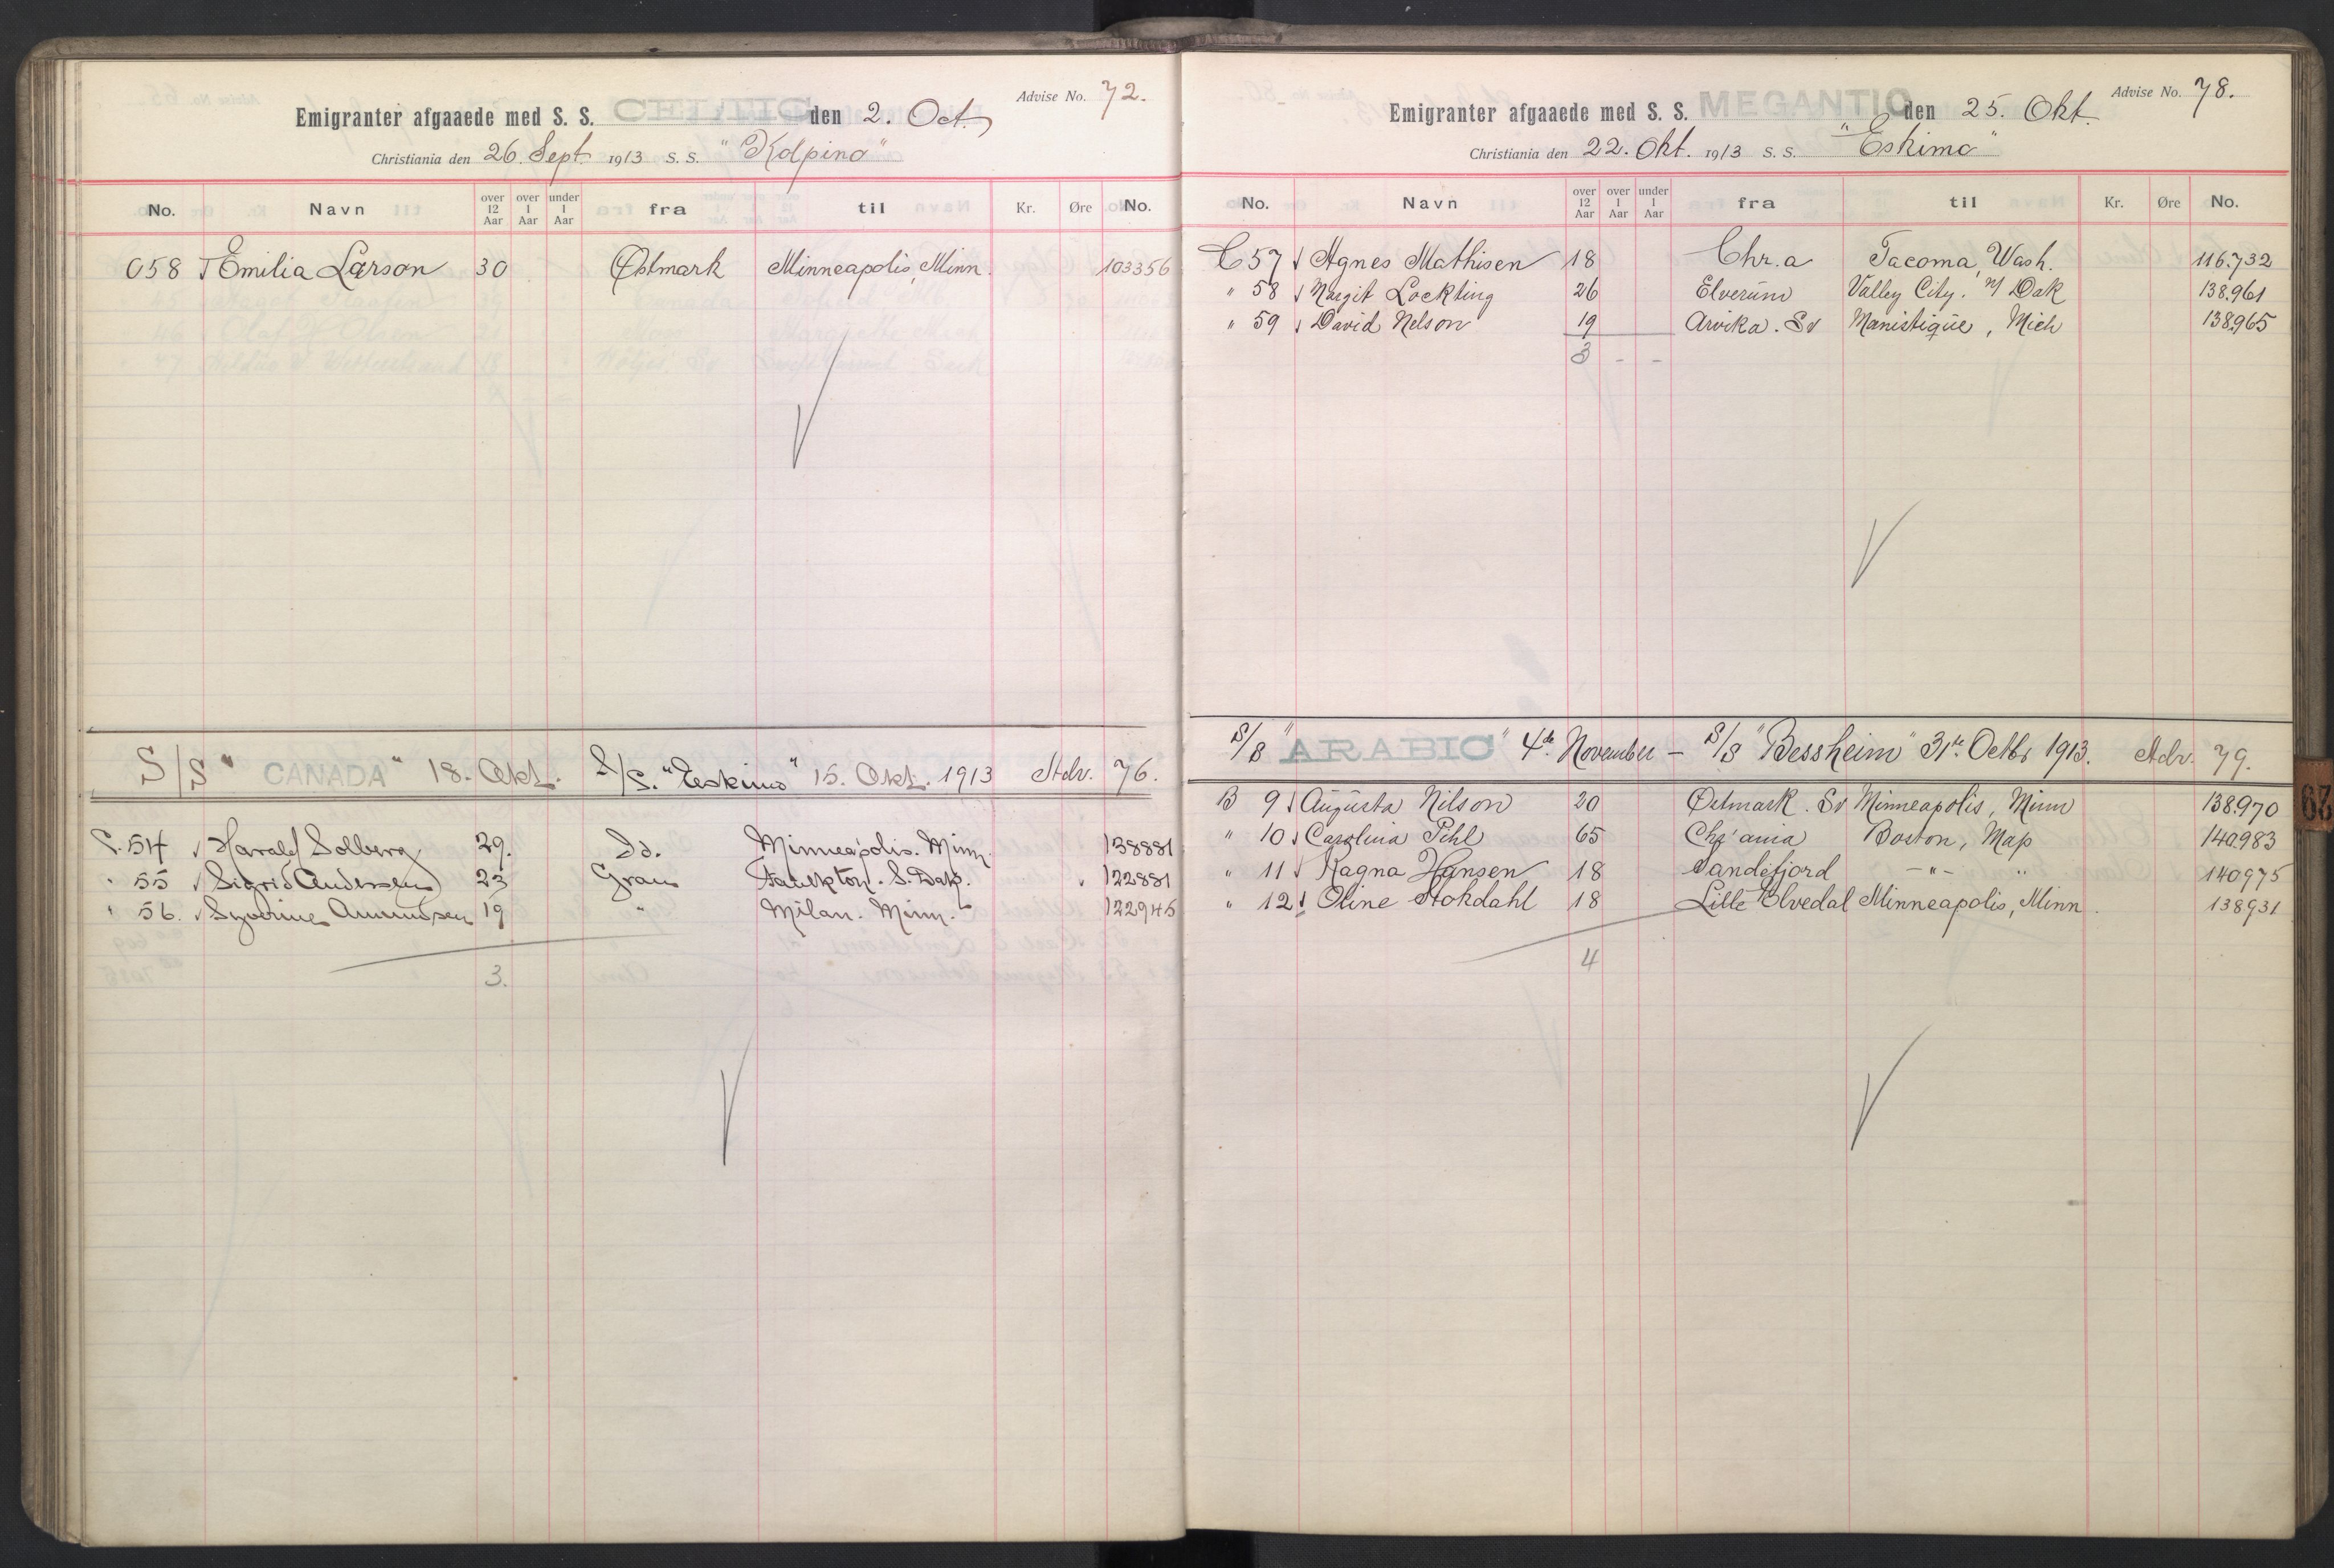 Advise No. 72.
Emigranter afgaaede med S. S. CELTIC den 2. Oct.
Christiania den 26. Sept. 1913 S. S. "Kolpino"
No. Navn over 12 Aar over 1 Aar under 1 Aar fra til Kr. Øre No.
C58 Emilia Larson 30 Østmark Minneapolis, Minn. 103356
S/S "CANADA" 18. Okt. S/S. "Eskimo" 15. Okt. 1913 Adv. 76.
C. 54 Harald Solberg 29. Id. Minneapolis. Minn. 138881
" 55 Sigrid Andersen 23 Gran Faulkton. S. Dak. 122881
" 56. Syverine Amundsen 19 " Milan. Minn. 122945
3.
Advise No. 78.
Emigranter afgaaede med S. S. MEGANTIC den 25. Okt.
Christiania den 22. Okt. 1913 S. S. "Eskimo"
No. Navn over 12 Aar over 1 Aar under 1 Aar fra til Kr. Øre No.
C57 Agnes Mathisen 18 Chr.a Tacoma, Wash. 116.732
" 58 Margit Lockting 26 Elverum Valley City. N/ Dak 138.961
" 59 David Nelson 19 Arvika. Sv Manistique, Mich 138.965
3 - -
S/S "ARABIC" 4de November - S/S "Bessheim" 31te Octbr 1913. Adv. 79.
B 9 Augusta Nilson 20 Østmark. Sv Minneapolis, Minn 138.970
" 10 Carolina Pihl 65 Chr'ania Boston, Mass 140.983
" 11 Ragna Hansen 18 Sandefjord -"- " 140975
" 12 Oline Stokdahl 18 Lille Elvedal Minneapolis, Minn. 138931
4